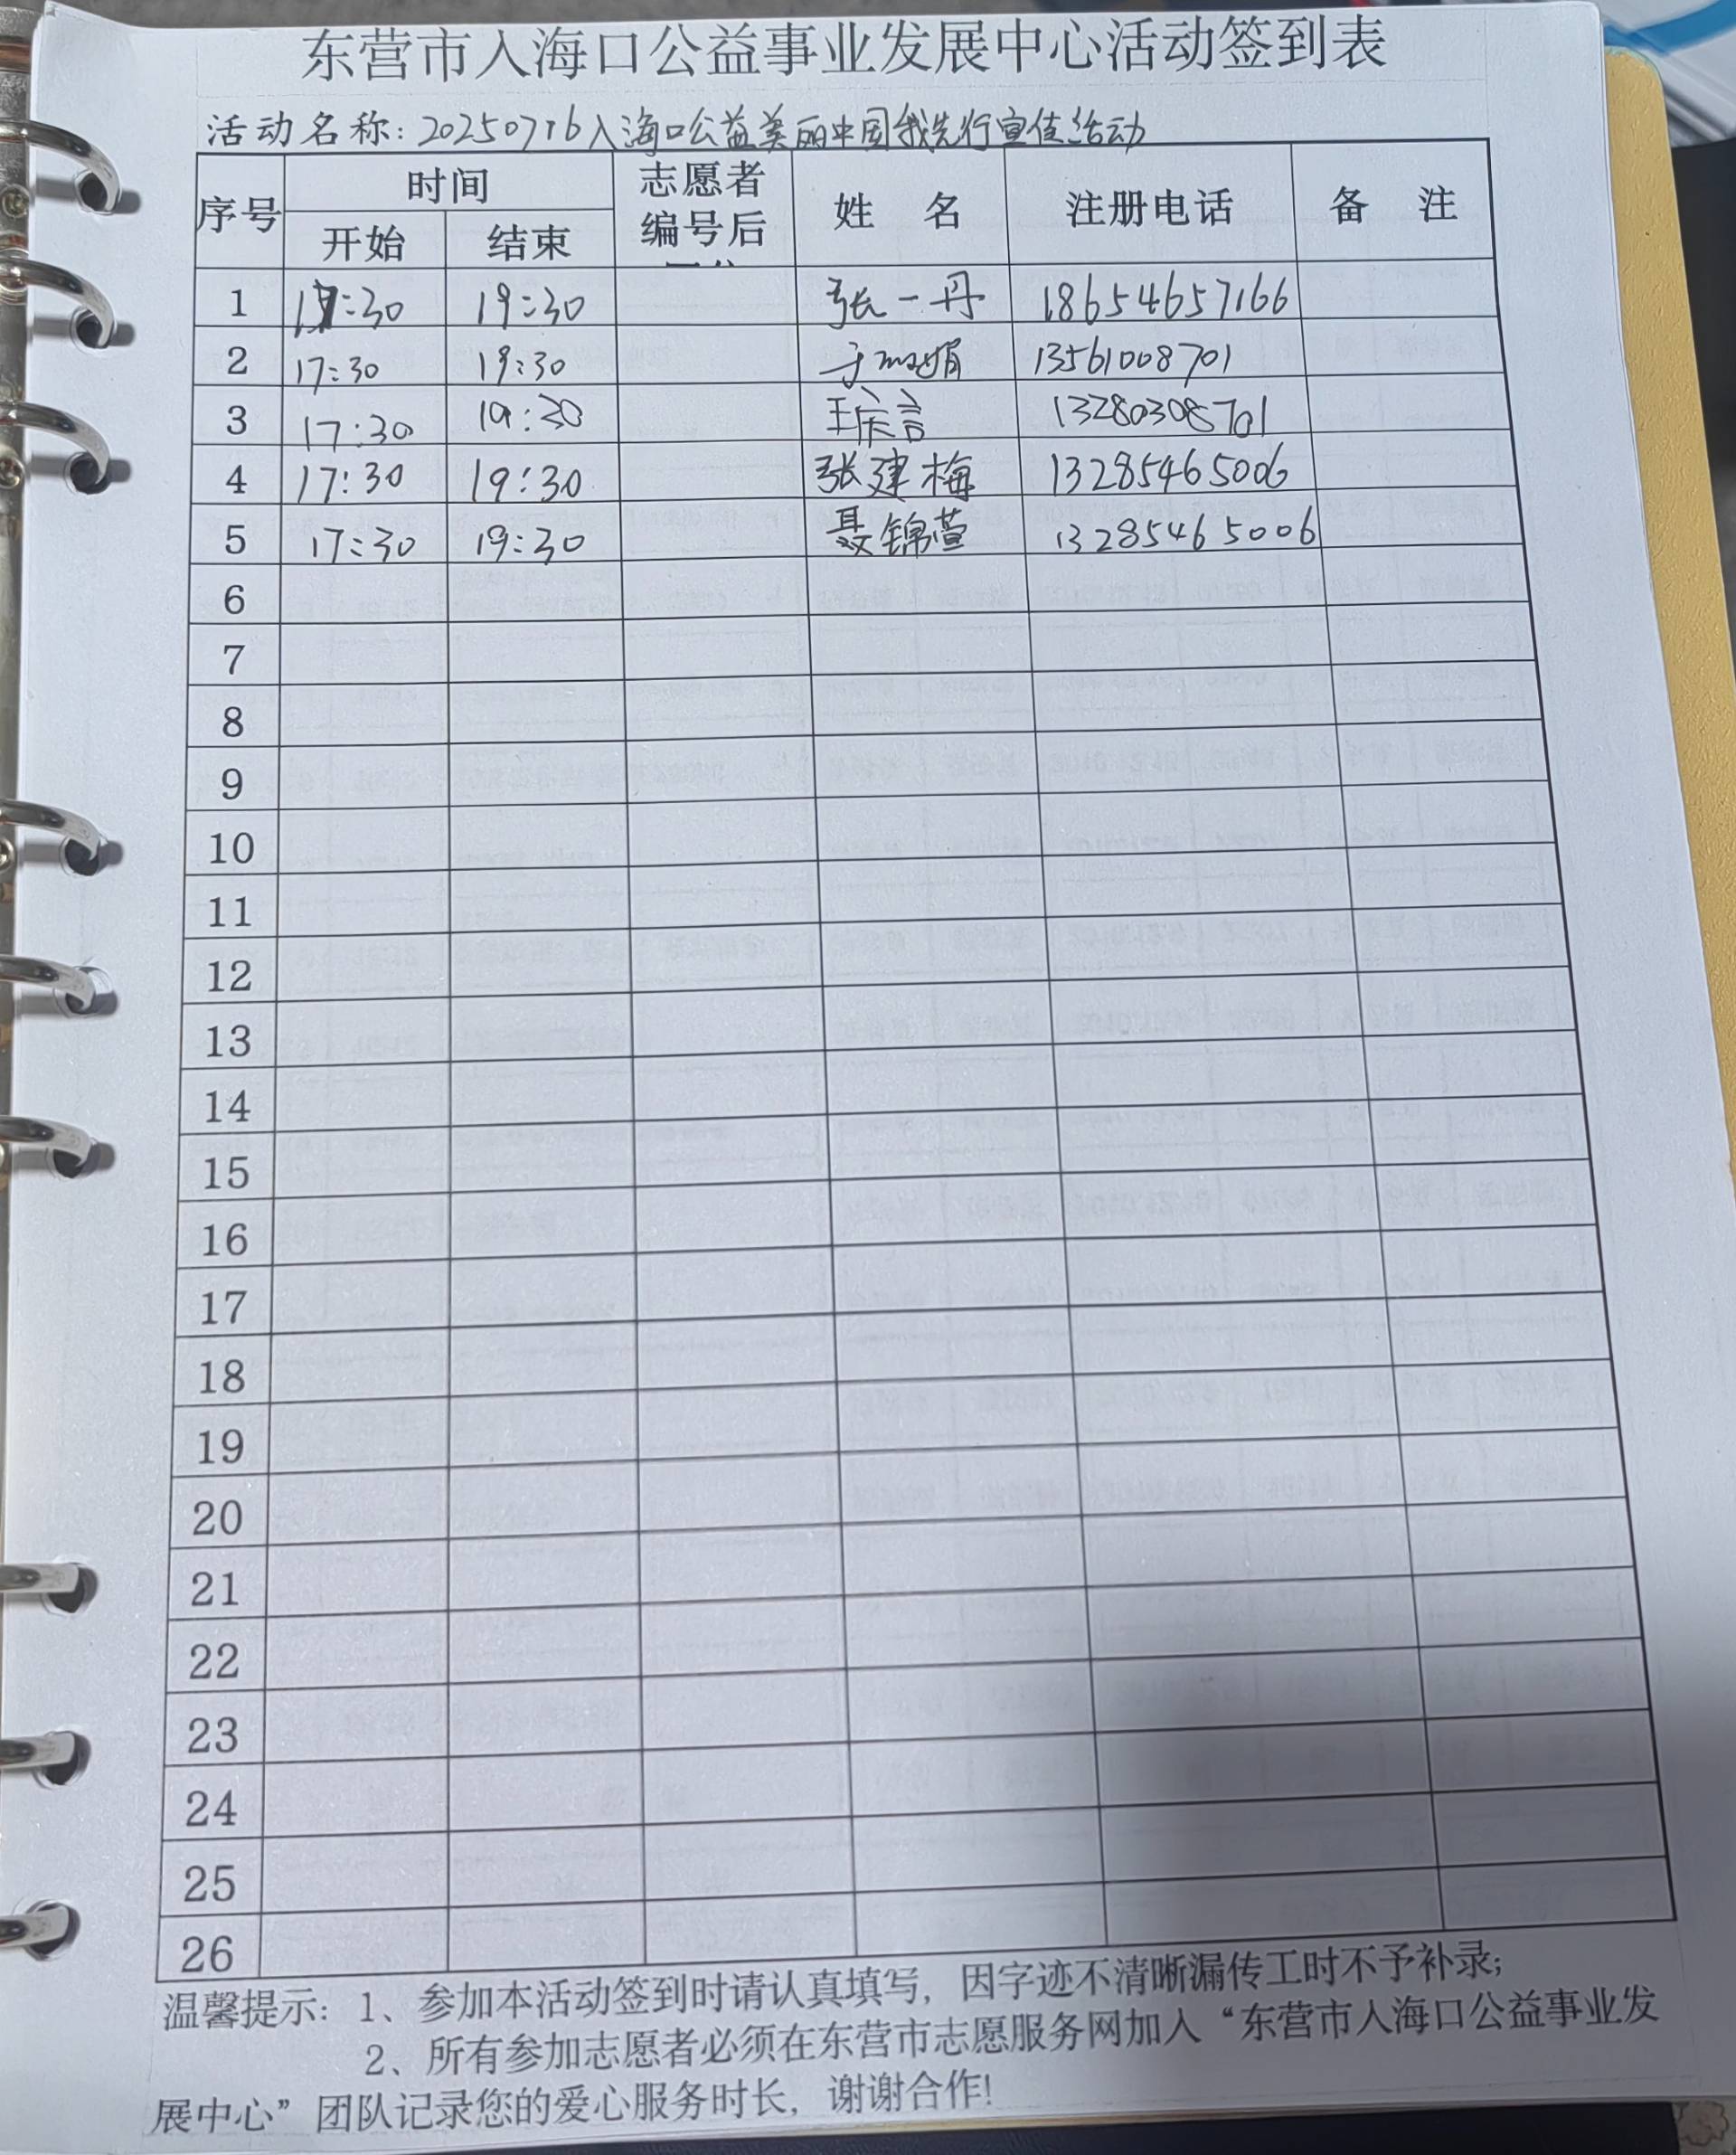 东营市入海口公益事业发展中心活动签到表
活动名称：20250716入海口公益美丽中国我先行宣传活动
序号 时间 志愿者编号后 姓 名 注册电话 备 注
开始 结束
1 17:30 19:30 张一丹 18654657166
2 17:30 19:30 于 娟 13561008701
3 17:30 19:30 王 言 13280308701
4 17:30 19:30 张建梅 13285465006
5 17:30 19:30 聂锦萱 13285465006
6
7
8
9
10
11
12
13
14
15
16
17
18
19
20
21
22
23
24
25
26
温馨提示：1、参加本活动签到时请认真填写，因字迹不清晰漏传工时不予补录；
2、所有参加志愿者必须在东营市志愿服务网加入“东营市入海口公益事业发
展中心”团队记录您的爱心服务时长，谢谢合作!